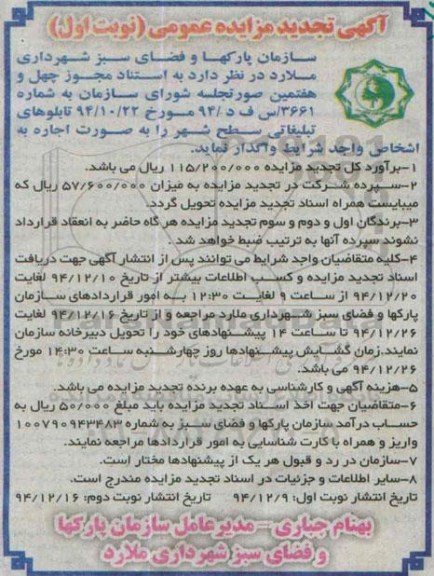 آگهی تجدید مزایده عمومی (نوبت اول)
سازمان پارکها و فضای سبز شهرداری
ملارد در نظر دارد به استناد مجوز چهل و
هفتمین صورتجلسه شورای سازمان به شماره
۳۶۶۱/س ف د /۹۴ مورخ ۹۴/۱۰/۲۲ تابلوهای
تبلیغاتی سطح شهر را به صورت اجاره به
اشخاص واجد شرایط واگذار نماید.
۱-برآورد کل تجدید مزایده ۱۱۵/۲۰۰/۰۰۰ ریال می باشد.
۲-سپرده شرکت در تجدید مزایده به میزان ۵۷/۶۰۰/۰۰۰ ریال که
میبایست همراه اسناد تجدید مزایده تحویل گردد.
۳-برندگان اول و دوم و سوم تجدید مزایده هر گاه حاضر به انعقاد قرارداد
نشوند سپرده آنها به ترتیب ضبط خواهد شد .
۴-کلیه متقاضیان واجد شرایط می توانند پس از انتشار آگهی جهت دریافت
اسناد تجدید مزایده و کسب اطلاعات بیشتر از تاریخ ۹۴/۱۲/۱۰ لغایت
۹۴/۱۲/۲۰ از ساعت ۹ لغایت ۱۲:۳۰ به امور قراردادهای سازمان
پارکها و فضای سبز شهرداری ملارد مراجعه و از تاریخ ۹۴/۱۲/۱۶ لغایت
۹۴/۱۲/۲۶ تا ساعت ۱۴ پیشنهادهای خود را تحویل دبیرخانه سازمان
نمایند.زمان گشایش پیشنهادها روز چهارشنبه ساعت ۱۴:۳۰ مورخ
۹۴/۱۲/۲۶ می باشد.
۵-هزینه آگهی و کارشناسی به عهده برنده تجدید مزایده می باشد.
۶-متقاضیان جهت اخذ اسناد تجدید مزایده باید مبلغ ۵۰/۰۰۰ ریال به
حساب درآمد سازمان پارکها و فضای سبز به شماره ۱۰۰۷۹۰۹۴۳۴۸۳
واریز و همراه با کارت شناسایی به امور قراردادها مراجعه نمایند.
۷-سازمان در رد و قبول هر یک از پیشنهادها مختار است.
۸-سایر اطلاعات و جزئیات در اسناد تجدید مزایده مندرج است.
تاریخ انتشار نوبت اول: ۹۴/۱۲/۹ تاریخ انتشار نوبت دوم: ۹۴/۱۲/۱۶
بهنام جباری - مدیرعامل سازمان پارکها
و فضای سبز شهرداری ملارد